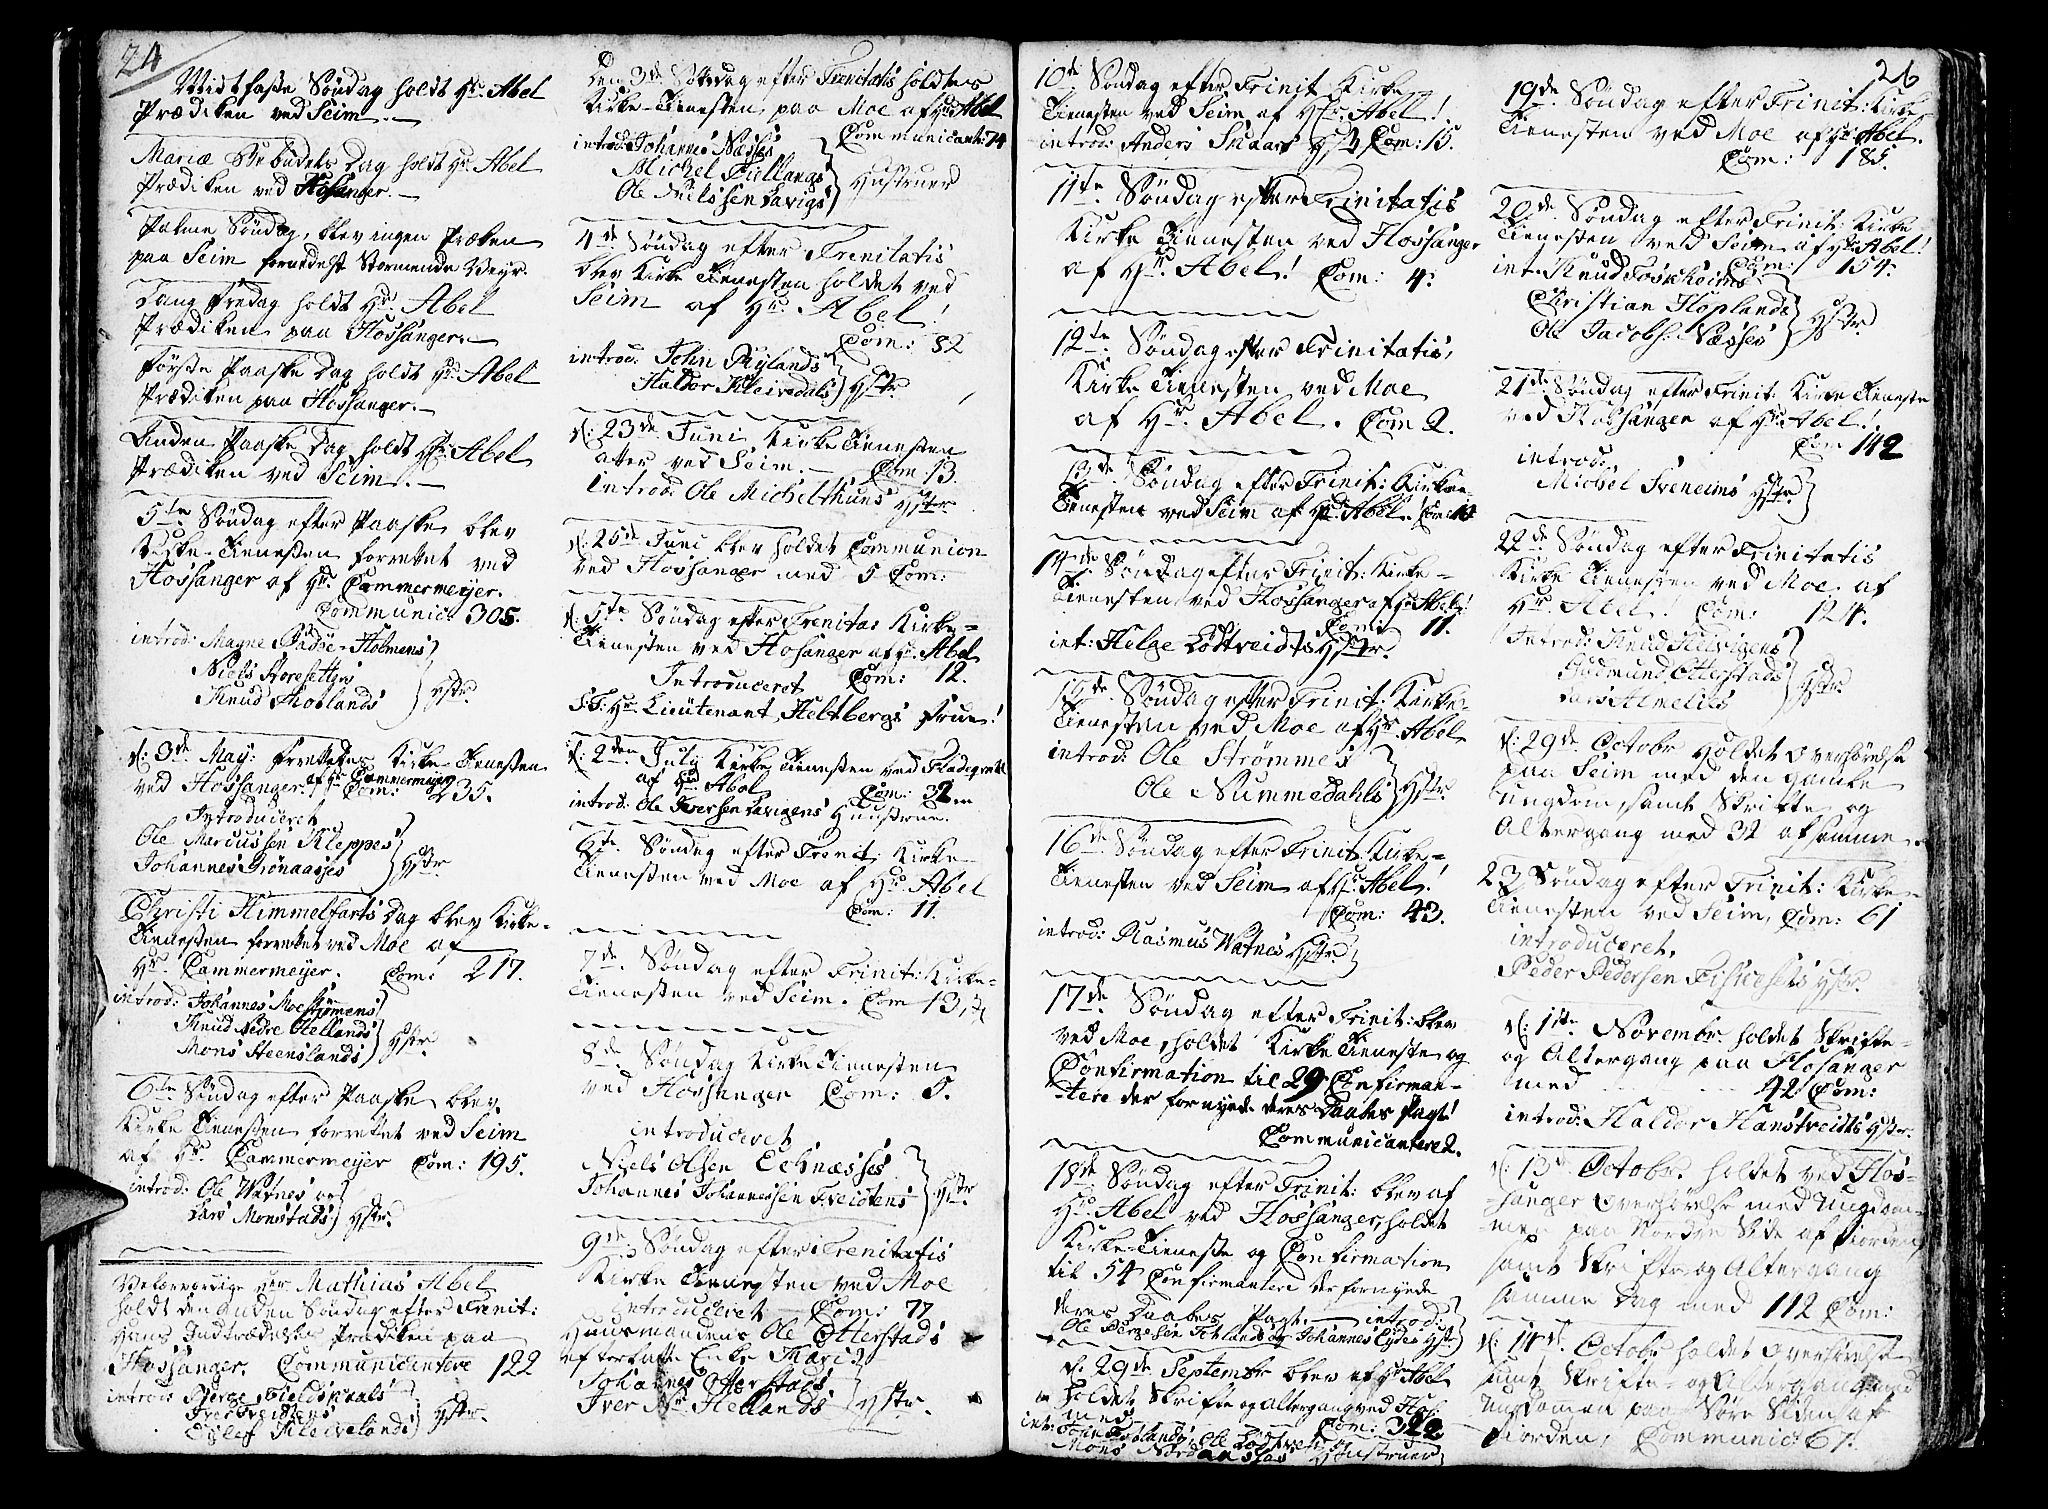 24
Midtfaste Søndag holdt Hr. Abel
Prædiken ved Seim.
Mariæ Bebudels Dag holdt Hr. Abel
Prædiken ved Hosanger.
Palme Søndag, blev ingen Præken
paa Seim formedelst Stormende Veyr.
Lang Fredag holdt Hr. Abel
Prædiken paa Hossanger.
Første Paaske Dag holdt Hr. Abel
Prædiken paa Hossanger.
Anden Paaske Dag holdt Hr. Abel
Prædiken ved Seim.
5te Søndag efter Paaske blev
Kirke-Tienesten forrettet ved
Hossanger af Hr. Cammermeyer.
Communic: 305.
introd: Magne Padøe-Holmens
Niels
Knud Hotlands Hstr.
d: 3de May: forrettedes Kirke-Tienesten
ved Hossanger. af Hr. Cammermeyer Com: 235.
Introduceret
Ole Marcussen Kleppes
Johannes Grønaasses Hstr
Christi Himmelfarts Dag blev Kirke-
Tienesten forrettet ved Moe af
Hr. Cammermeyer. Com: 217.
introd: Johannes Moestrømens
Knud Nedre Hellands
Mons Steenslands Hstr.
6te Søndag efter Paaske blev
Kirke Tienesten forrettet ved Seim
af Hr. Cammermeyer Com: 195.
introd: Ole Watnes og
Lars Monstads Hstr.
Velærværdige Herr Mathias Abel
holdt den Anden Søndag efter Trenit:
Hans Indtrædelses Prædiken paa
Hossanger. Communicantere 122
introd:
Iver Tveitens
Kleivelands Hstr.
Den 3de Søndag efter Trenitatis holdtes
Kirke-Tienesten paa Moe af Hr. Abel
Communicant: 74
introd: Johannes Næsses
Michel Fiellangs
Ole Nielssen Lavigs Hustruer
4de Søndag efter Trenitatis
blev Kirke Tienesten holdet ved
Seim af Hr. Abel!
Com: 82
introd: John Rylands
Haldor Kleivedals Hstr.
d: 23de Juni Kirke Tienesten
atter ved Seim. Com 13.
Introd: Ole Michelthuns Hstr.
d: 25de Juni blev holdet Communion
ved Hossanger med 5 Com:
d: 5te Søndag efter Trenitas Kirke-
Tienesten ved Hosanger af Hr. Abel
Introduceret Com: 12.
S:T: Hr. Lieutenant Heltbergs Frue!
d: 2den July Kirke Tienesten ved Fladegreet
af Hr. Abel Com: 32
introd: Ole Iversen Lavigens Huustrue.
6te Søndag efter Trenit: Kirke-
Tienesten ved Moe af Hr. Abel
Com: 11.
7de Søndag efter Trinit: Kirke-
Tienesten ved Seim. Com 13
8de Søndag Kirke Tienesten
ved Hossanger Com: 5.
introduceret
Niels Olsen Echnæsses
Johannes Johannessen Tveidtens Hstr
9de Søndag efter Trenitatis
Kirke Tienesten ved Moe
introduceret Com: 77
Huusmandens Ole Otterstads
efterladte Enke
Johannes Otterstads
Iver Hellands Hstr.
10de Søndag efter Trinit Kirke
Tienesten ved Seim af Hr. Abel!
introd: Anders Hstr Com: 15.
11te Søndag efter Trinitatis
Kirke Tienesten ved Hossanger
af Hr. Abel! Com: 4.
12te Søndag efter Trinitatis,
Kirke Tienesten ved Moe
af Hr. Abel. Com 2.
13de Søndag efter Trinit: Kirke-
Tienesten ved Seim af Hr. Abel. Com:
14de Søndag efter Trinit: Kirke-
Tienesten ved Hossanger af Hr. Abel!
Com: 11.
int: Helge Lødtveidts Hstr.
15de Søndag efter Trinit: Kirke-
Tienesten ved Moe af Hr Abel
introd: Ole Strømmes
Ole Nummedahls Hstr.
16de Søndag efter Trinit: Kirke-
Tienesten ved Seim af Hr. Abel!
Com: 43.
introd: Rasmus Watnes Hstr
17de Søndag efter Trinit: blev
ved Moe, holdet Kirke Tieneste og
Confirmation til 29 Confirman-
tere der fornyede deres Daabes Pagt!
Communicantere 2.
18de Søndag efter Trinit: blev af
Hr. Abel ved Hossanger, holdet
Kirke-Tieneste og Confirmation
til 54 Confirmantere der fornyede
deres Daabes Pagt. introd:
Ole Johannes Eides Hstr
d: 29de Septembr blev af Hr. Abel
holdet Skrifte og Altergang ved Hos.
med Com: 322
int: Ole
Mons Hustruer
26
19de Søndag efter Trinit: Kirke
Tienesten ved Moe af Hr. Abel.
Com: 185.
20de Søndag efter Trinit: Kirke
Tienesten ved Seim af Hr. Abel!
Com: 154.
int. Knud
Christian Hoplands
Ole Jacobs: Næsses Hstr.
21de Søndag efter Trinit: Kirke Tieneste
ved Hossanger af Hr. Abel!
Com 142
introd.
Michel Hstr.
22de Søndag efter Trinitatis
Kirke Tienesten ved Moe af
Hr. Abel! Com: 124.
Introd: Knud Helvigens
Gudmund Otterstads
Lars Almelies Hstr.
d: 29de Octobr Holdet Overhørelse
paa Seim med den gamle
Ungdom, samt Skrifte og
Altergang med 32 af samme.
23 Søndag efter Trinit: Kirke-
Tienesten ved Seim, Com: 61
introduceret.
Peder Pedersen Hstr.
d: 1ste Novembr. holdet Skrifte-
og Altergang paa Hosanger
med 42 Com:
introd: Haldor Hanstveidts Hstr.
d: 13de Octobr. holdet ved Hos-
sanger Overhørelse med Ungdom-
men paa Nordre Side af Fiorden
samt Skrifte og Altergang
samme Dag med 112 Com:
d: 14de Octobr holdet Overhørelse
samt Skrifte- og Altergang med
Ungdomen paa Søre Siden af
Fiorden, Communic: 67.